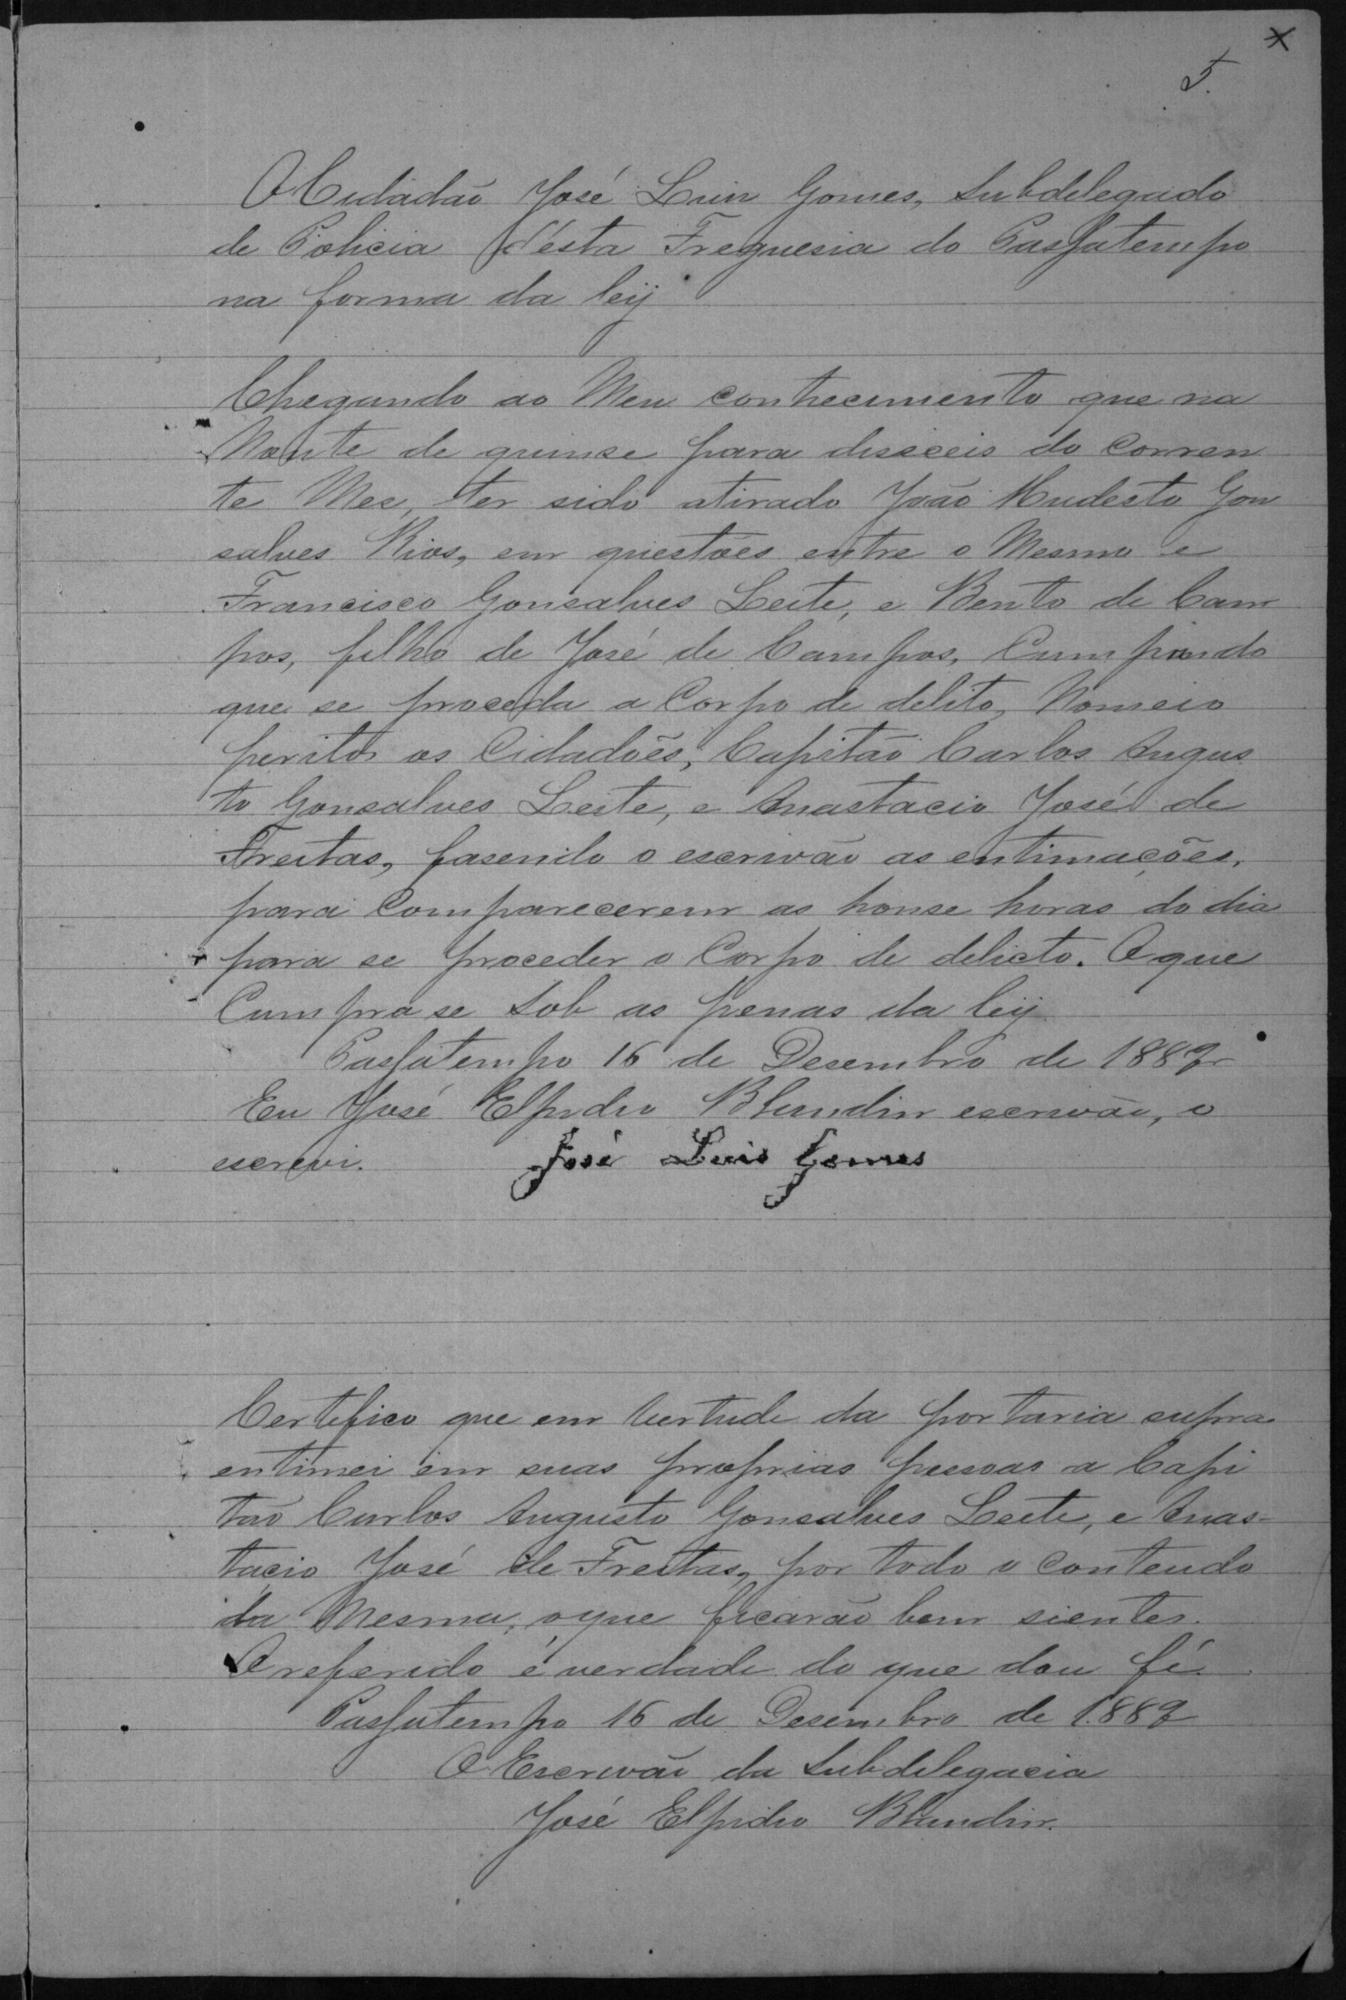 5.
O Cidadão José Luiz Gomes, Subdelegado
de Policia d'ésta Freguesia do Passatempo
na forma da leÿ
Chegando ao Meu conhecimento que na
Noute de quinse para diseceis do Corren
te Mez, ter sido atirado João Mudesto Gon
salves Rios, em questões entre o Mesmo e
Francisco Gonsalves Leite, e Bento de Cam
pos, filho de José de Campos, Cumprindo
que se proceda a Corpo de delito, Nomeio
peritos os Cidadões, Capitão Carlos Augus
to Gonsalves Leite, e Anastacio José de
Freitas, fasendo o escrivão as entimações,
para Comparecerem as honse horas do dia
para se proceder o Corpo de delicto. O que
Cumpra se Sob as penas da leÿ
Passatempo 16 de Desembro de 1889
Eu José Elpidio Blandin escrivão, o
escrevi. José Luis Gomes
Certifico que em Vertude da portaria supra
entimei em suas proprias pessoas a Capi
tão Carlos Augusto Gonsalves Leite, e Anas-
tacio José de Freitas, por todo o Conteudo
da Mesma, oque ficarão bem sientes.
O referido é verdade do que dou fé.
Passatempo 16 de Desembro de 1889
O Escrivão da Subdelegacia
José Elpidio Blandin.